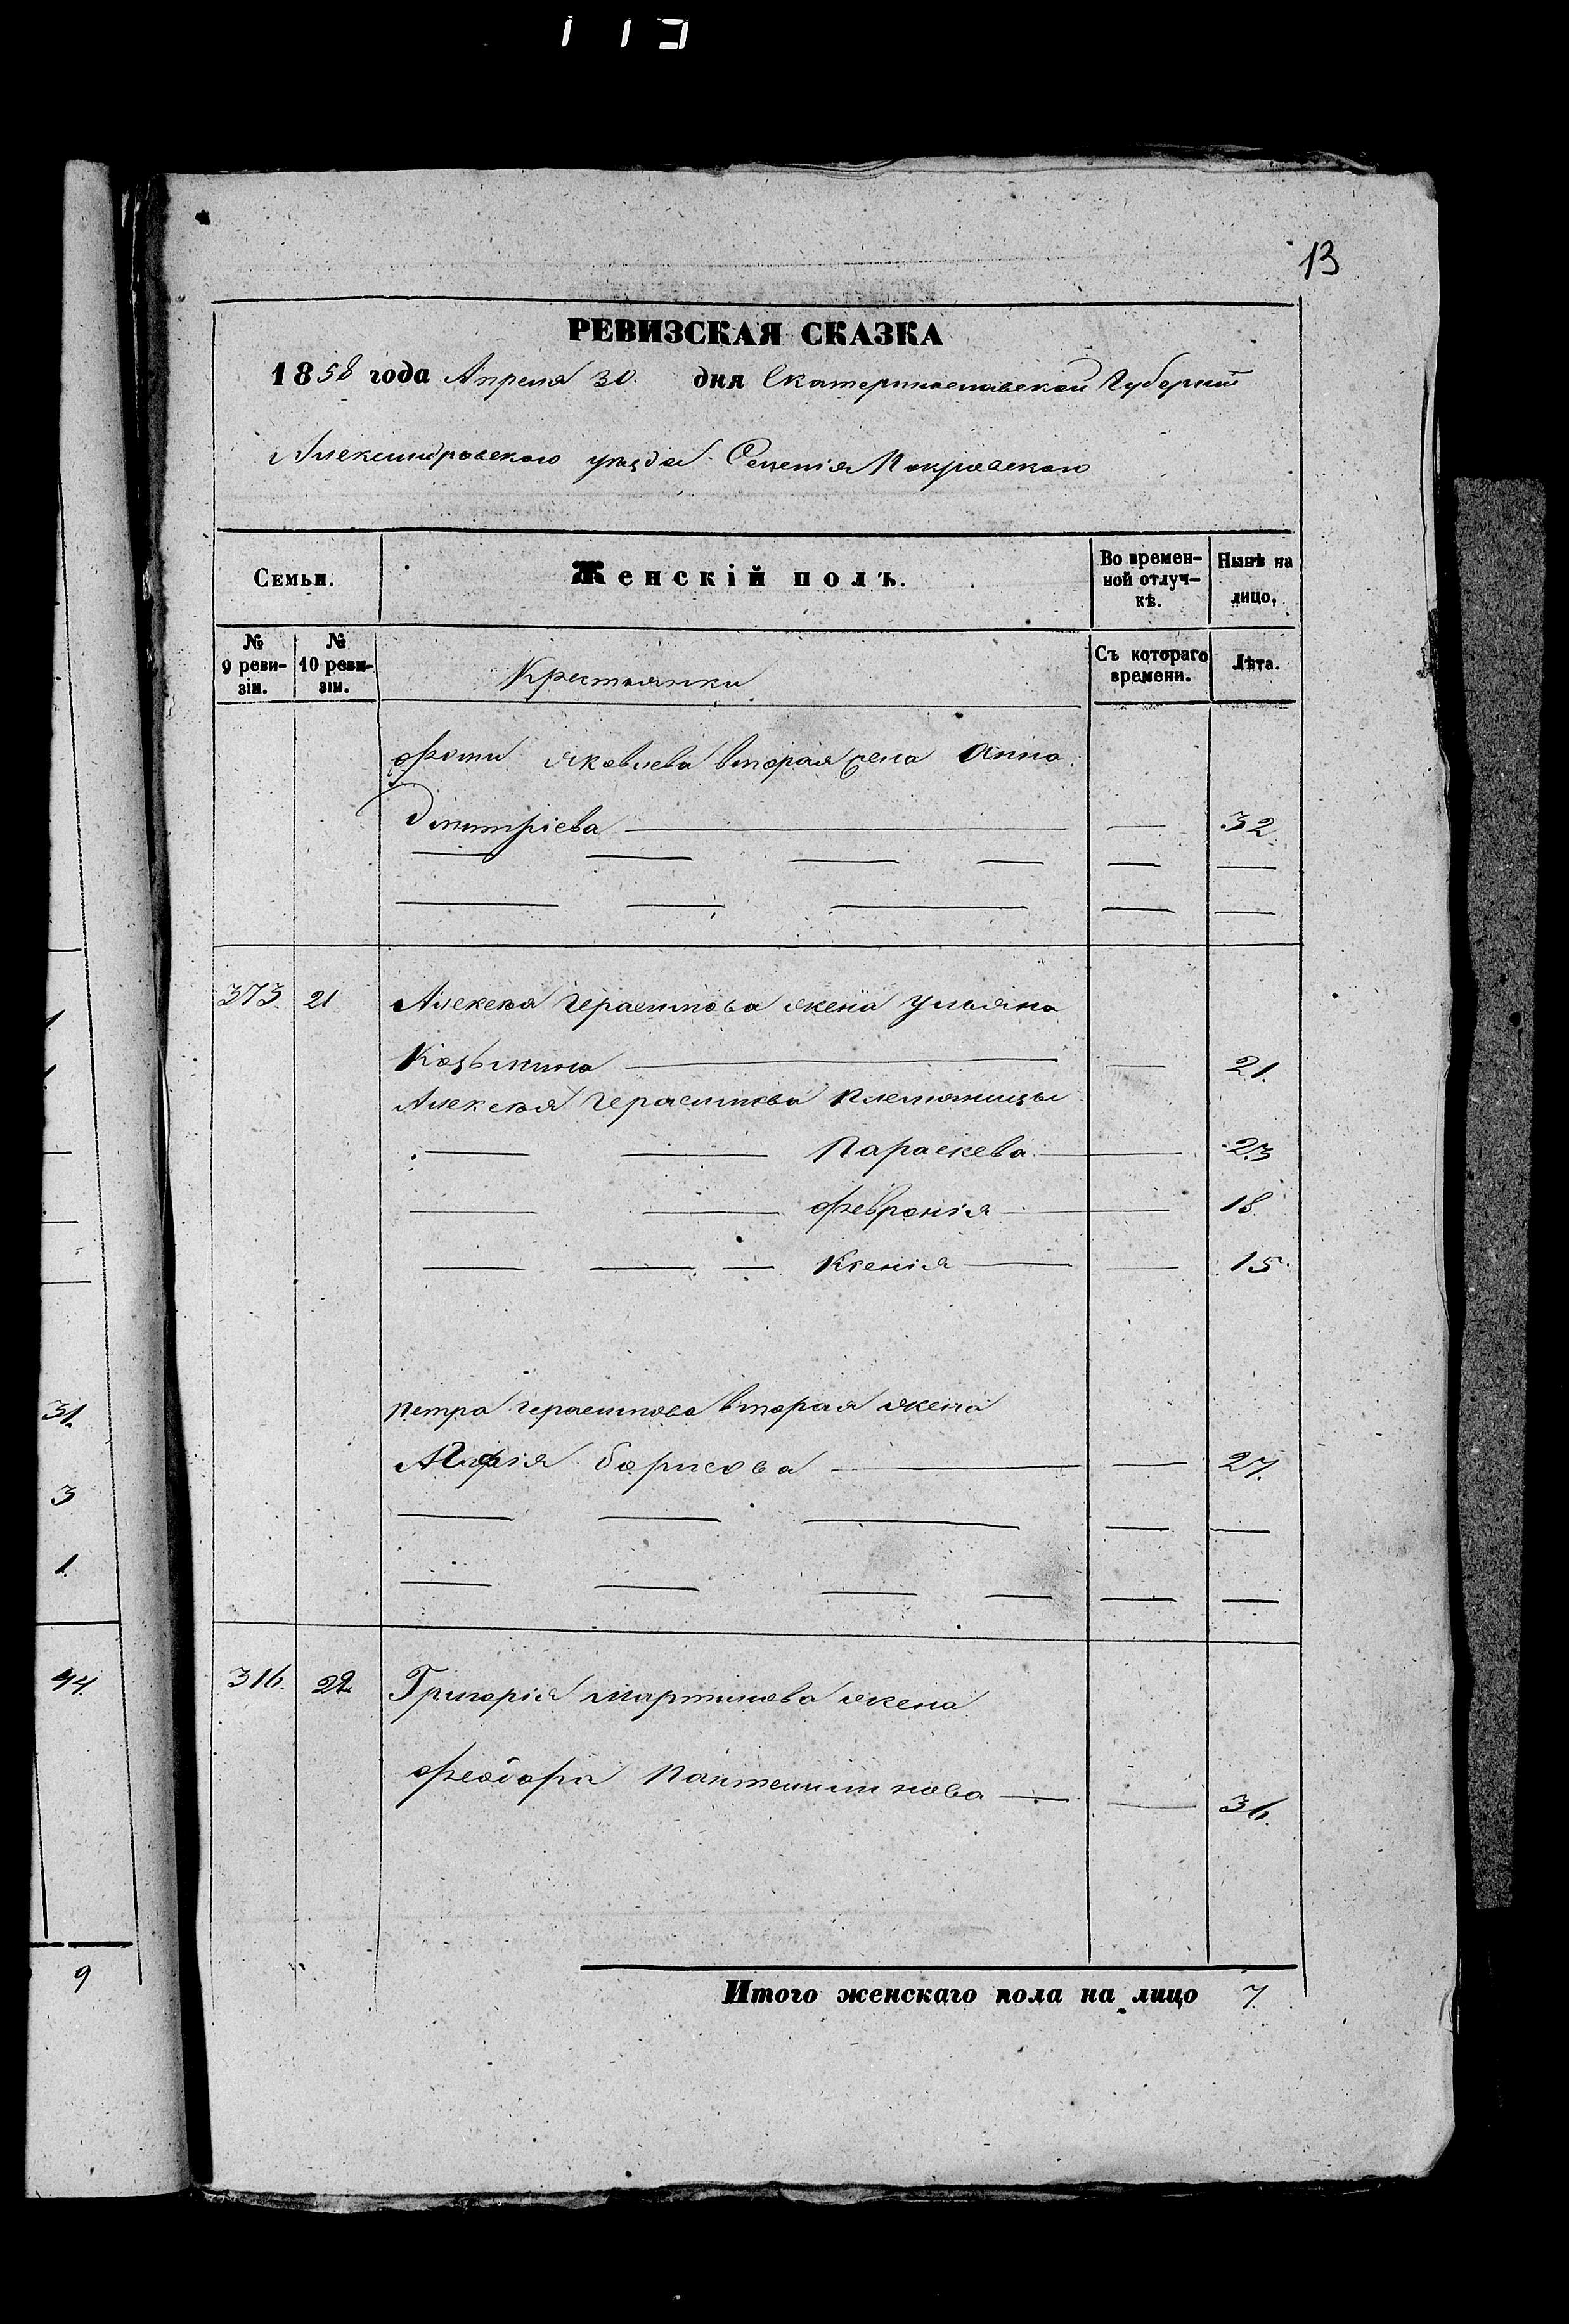 113
13
РЕВИЗСКАЯ СКАЗКА
1858 года Апреля 30. дня Екатеринославской Губернии
Александровского уѣзда Селенія Покровского
Семьи. Женскій полъ. Во времен-ной отлуч-кѣ. Нынѣ на лицо.
№ 9 реви-зіи. № 10 реви-зіи. Крестьянки Съ котораго времени. Лѣта.
Фомы Яковлева вторая жена Анна
Дмитріева — — 32.
373. 21 Алексѣя Герасимова жена Ульяна
Козьмина — — 21.
Алексѣя Герасимова племянницы
Параскева — 23
Февронія — 18.
Ксенія — — 15.
31.
Петра Герасимова вторая жена
Борисова — — 27.
3
1.
44. 316. 22 Григорія Мартинова жена
Феодора Пантелимонова — — 36.
9
Итого женскаго пола на лицо 7.